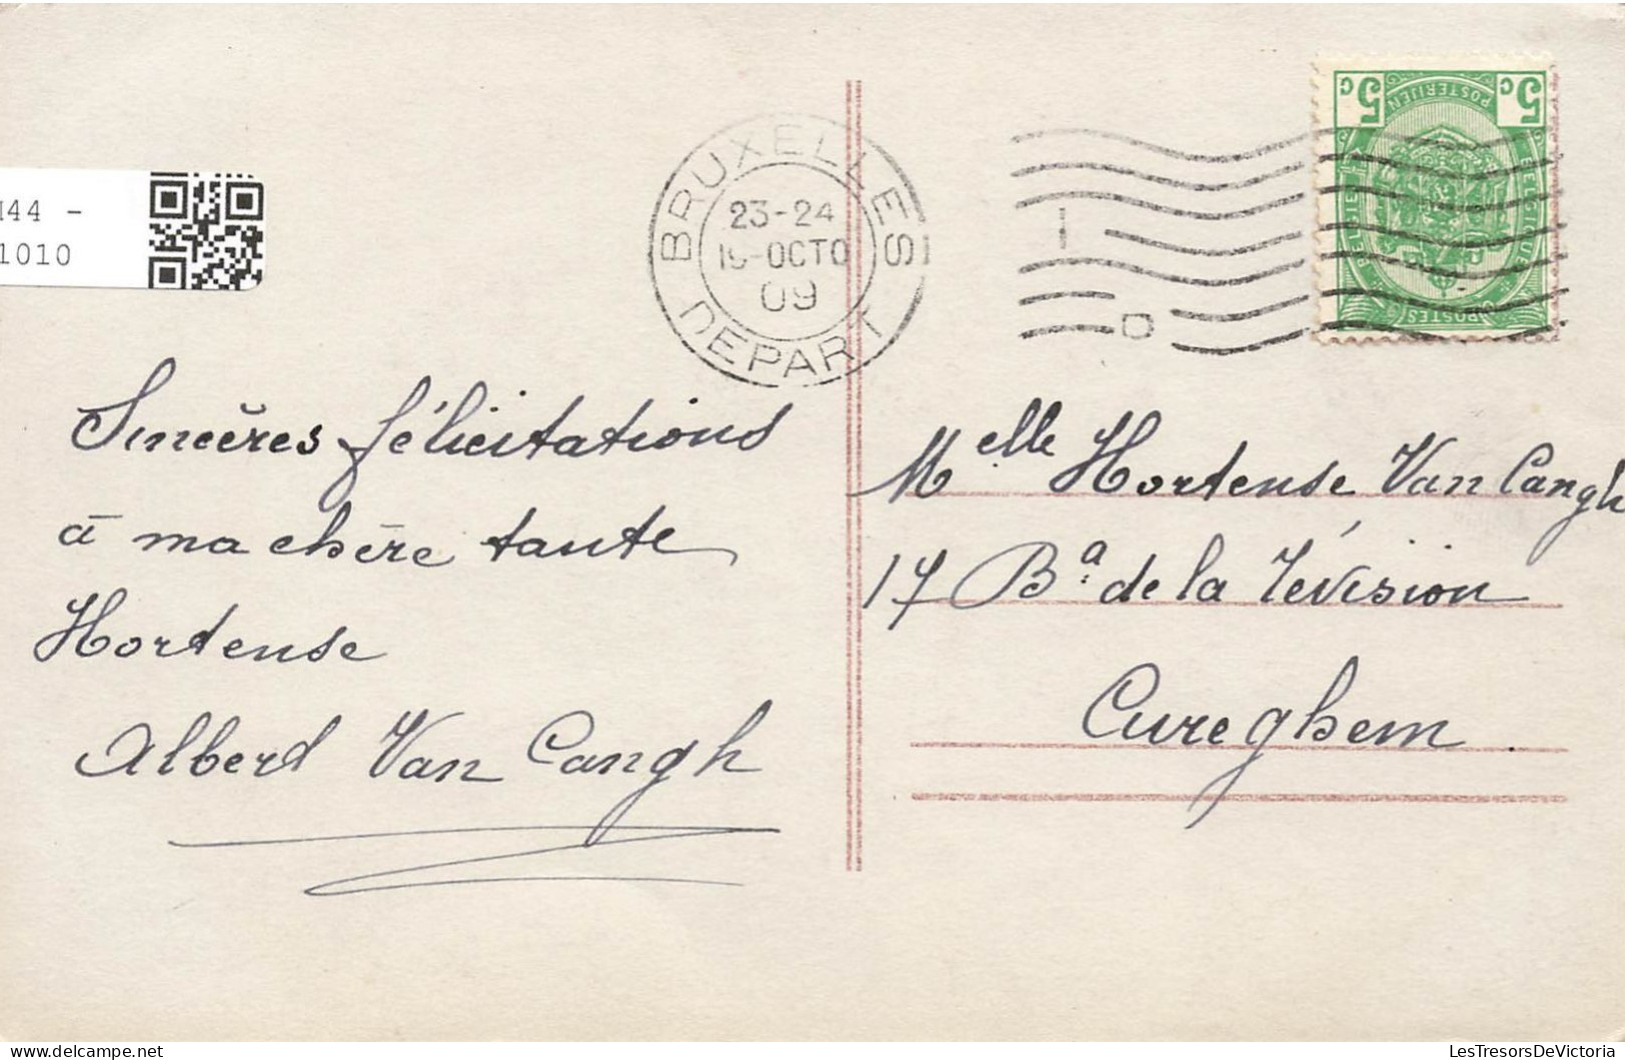 44 -
1010
BRUXELLES
23-24
OCTO
09
DEPART
5c 5c
POSTERIJEN
BELGIQUE
POSTES
Sincères félicitations
à ma chère tante
Hortense
Albert Van Cangh
Melle Hortense Van Cangh
17 Bd de la révision
Cureghem.
LesTresorsDeVictoria